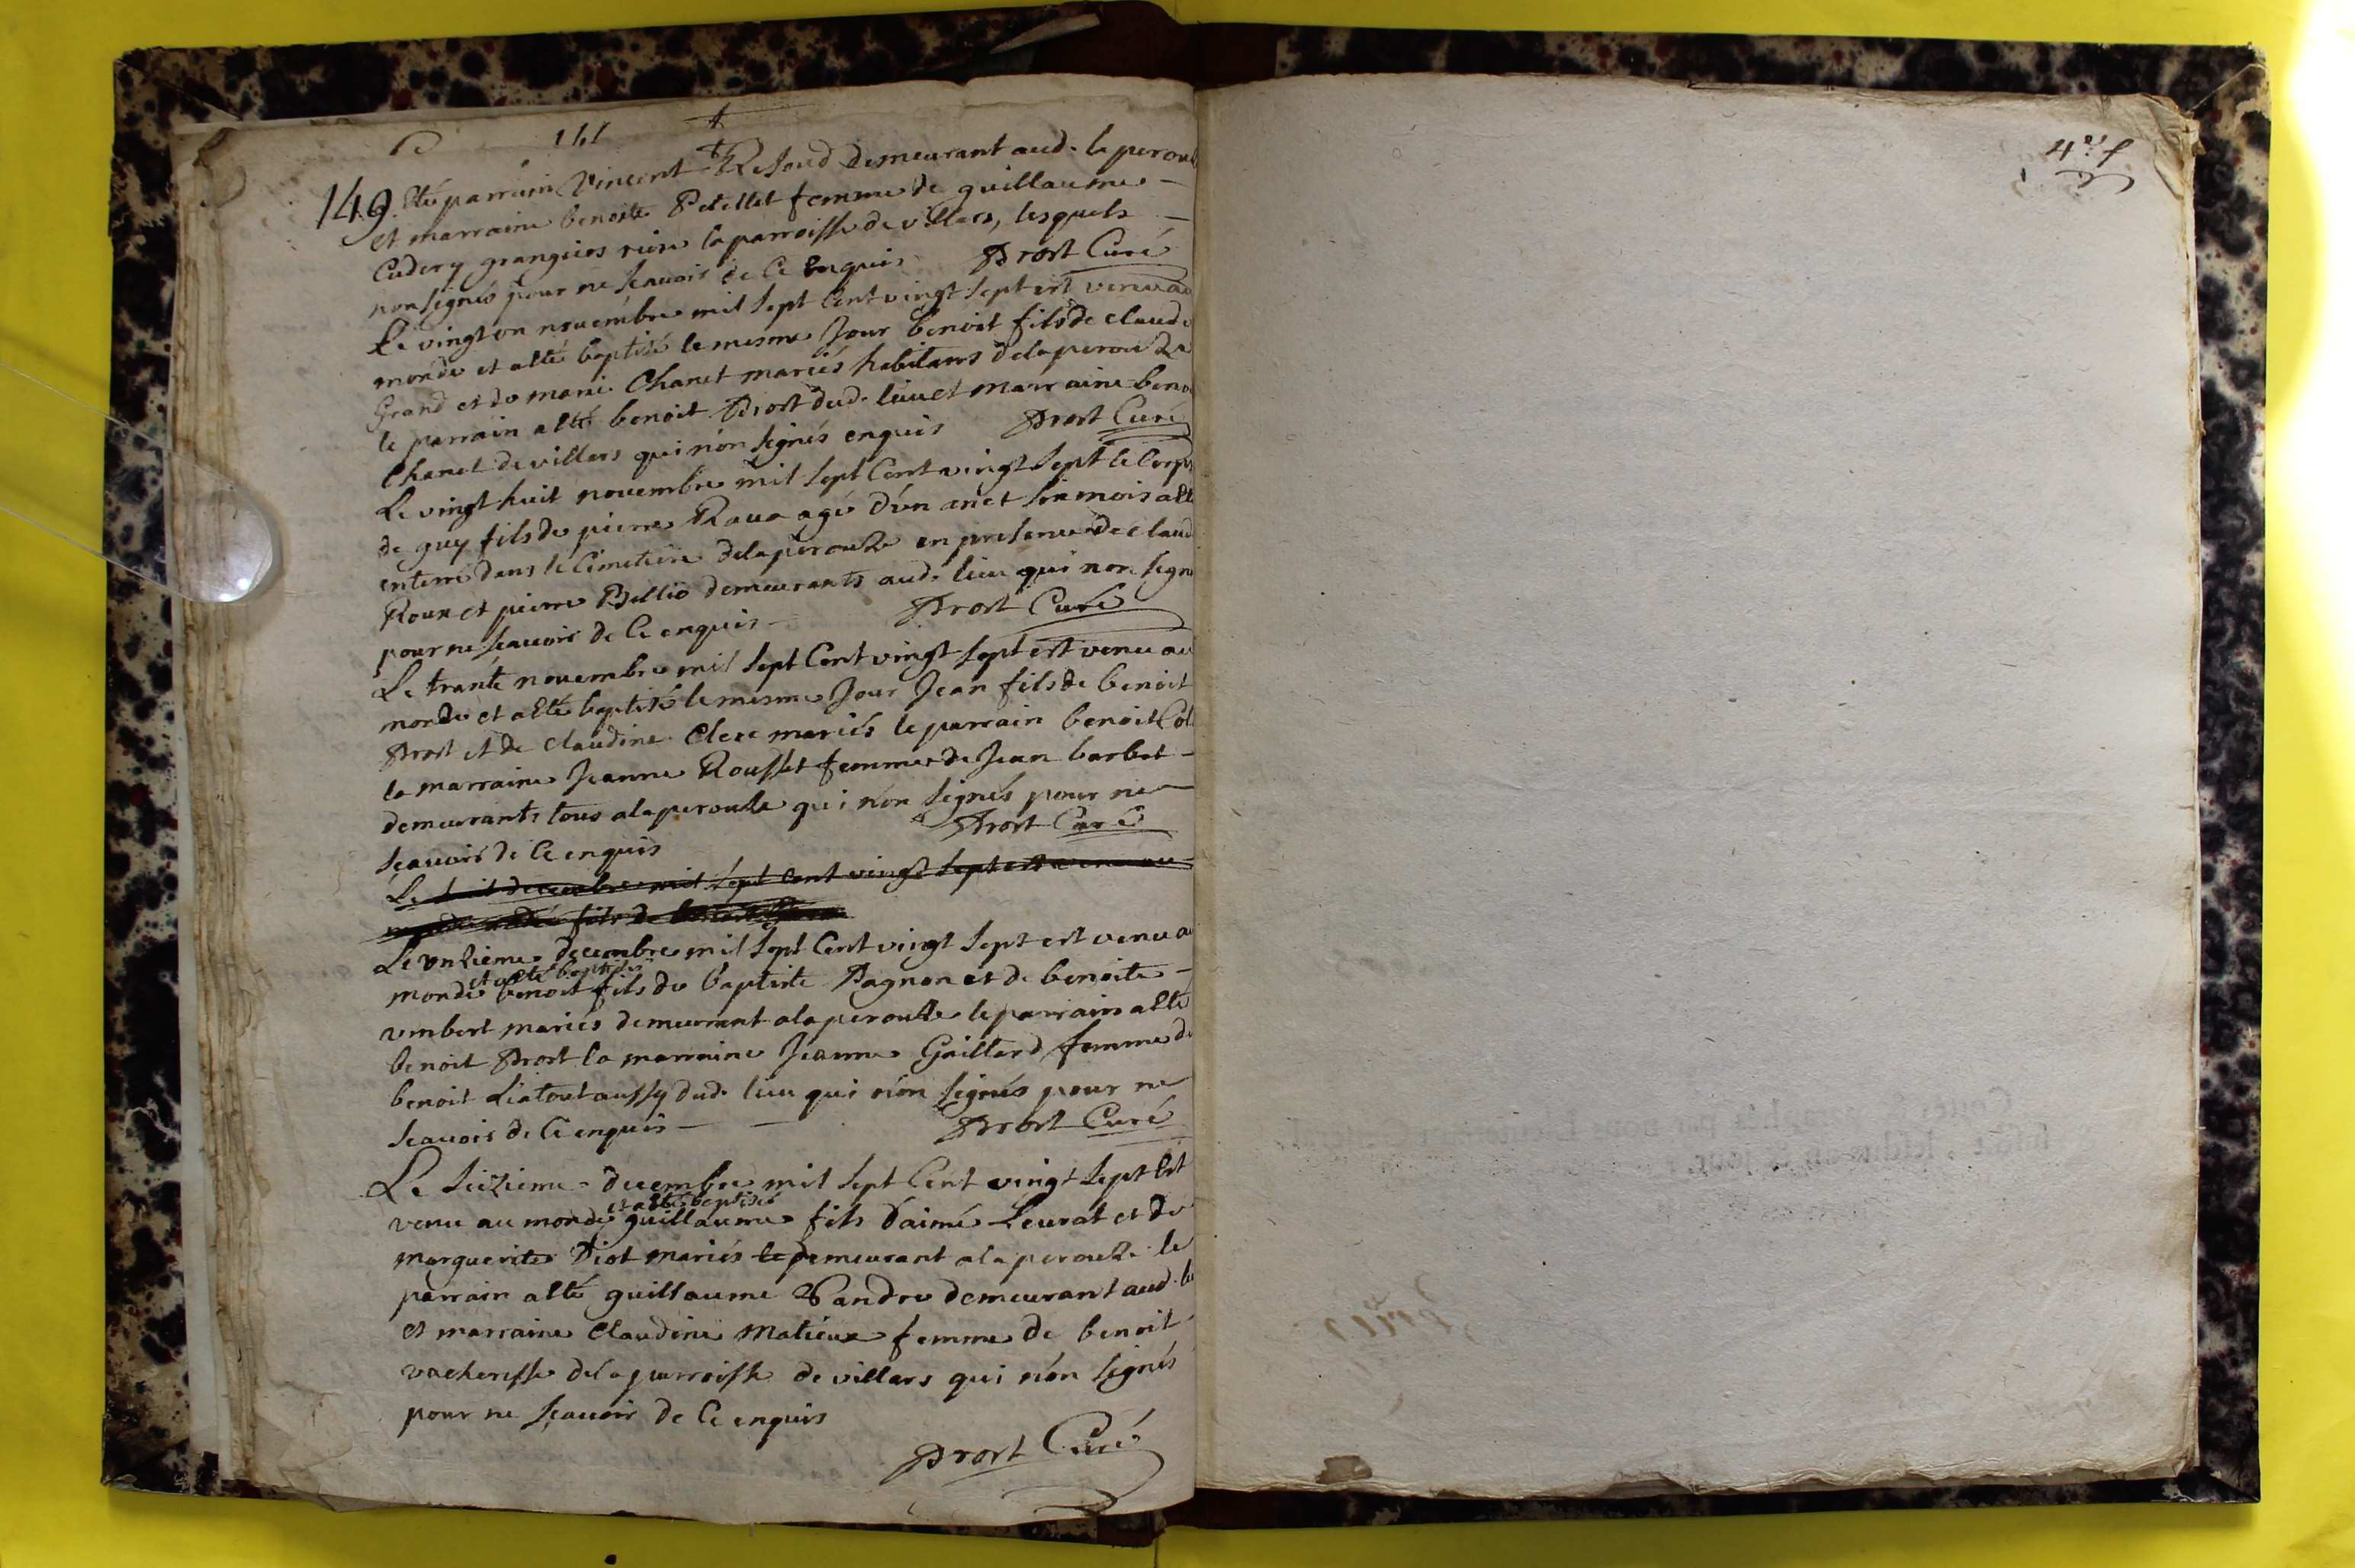 141
149. Eté parrain Vincent Resoud demeurant aud. la perouz
et marraine benoite Petellet femme de guillaume
Cudery grangier rière la parroisse de villars, lesquels
non signés pour ne scavoir de ce enquis Prost Curé
Le vingt un nouembre mil sept Cent vingt sept est venu au
monde et a eté baptisé le mesme Jour benoit fils de claude
Grand et de marie Chanet mariés habitans de la perouze
le parrain a eté benoit Prost dud. lieu et marraine beno
Chanet de villars qui n'on signés enquis Prost Curé
Le vingt huit nouembre mil sept Cent vingt sept le Corps
de guy fils de pierre Raua agé d'un an et six mois a eté
enterré dans le Cimetiere de la perouze en presence de claud
Roux et pierre Bellio demeurants aud. lieu qui non signé
pour ne scauoir de Ce enquis Prost Curé
Le trante nouembre mil sept Cent vingt sept est venu au
monde et a eté baptisé le mesme Jour Jean fils de benoit
Prost et de claudine Clere mariés le parrain benoit Col
la marraine Jeanne Rousset femme de Jean barbet
demeurants tous a la perouze qui n'on signés pour ne
scauoir de Ce enquis Prost Curé
Le huit decembre mil sept cent vingt sept est venu au
fils de
Le unzieme decembre mil sept Cent vingt sept est venu au
et a eté baptisé
monde benoit fils de baptiste Pagnon et de benoite
vmbert mariés demeurant a la perouze le parrain a eté
benoit Prost la marraine Jeanne Gaillard femme de
benoit Liatout aussy dud. lieu qui n'on signés pour ne
scauoir de Ce enquis Prost Curé
Le seizieme decembre mil sept Cent vingt sept Est
et a eté baptisé
venu au monde guillaume fils d'aimé Leurat et de
marguerite Diot mariés le demeurant a la perouze le
parrain a eté guillaume Pandre demeurant aud. lie
et marraine Claudine matieux femme de benoit
vacheresse de la parroisse de villars qui n'on signés
pour ne scauoir de Ce enquis
Prost Curé